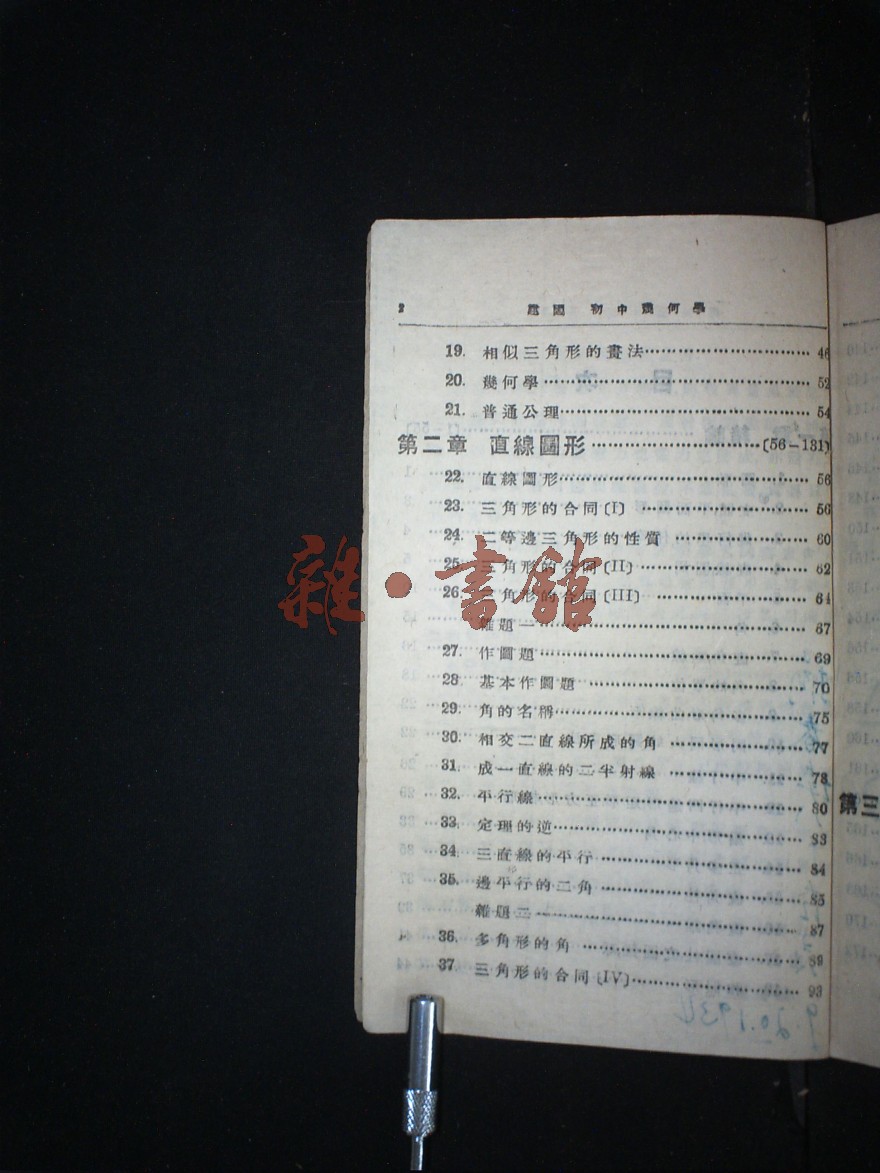 2 建國 初中幾何學
19. 相似三角形的畫法 46
20. 幾何學 52
21. 普通公理 54
第二章 直線圖形 (56-131)
22. 直線圖形 56
23. 三角形的合同(I) 56
24. 二等邊三角形的性質 60
25. 三角形的合同(II) 62
26. 三角形的合同(III) 64
雜·書館
雜題一 67
27. 作圖題 69
28. 基本作圖題 70
29. 角的名稱 75
30. 相交二直線所成的角 77
31. 成一直線的二半射線 78
32. 平行線 80
33. 定理的逆 83
34. 三直線的平行 84
35. 邊平行的二角 85
雜題二 87
36. 多角形的角 89
37. 三角形的合同(IV) 93
第三